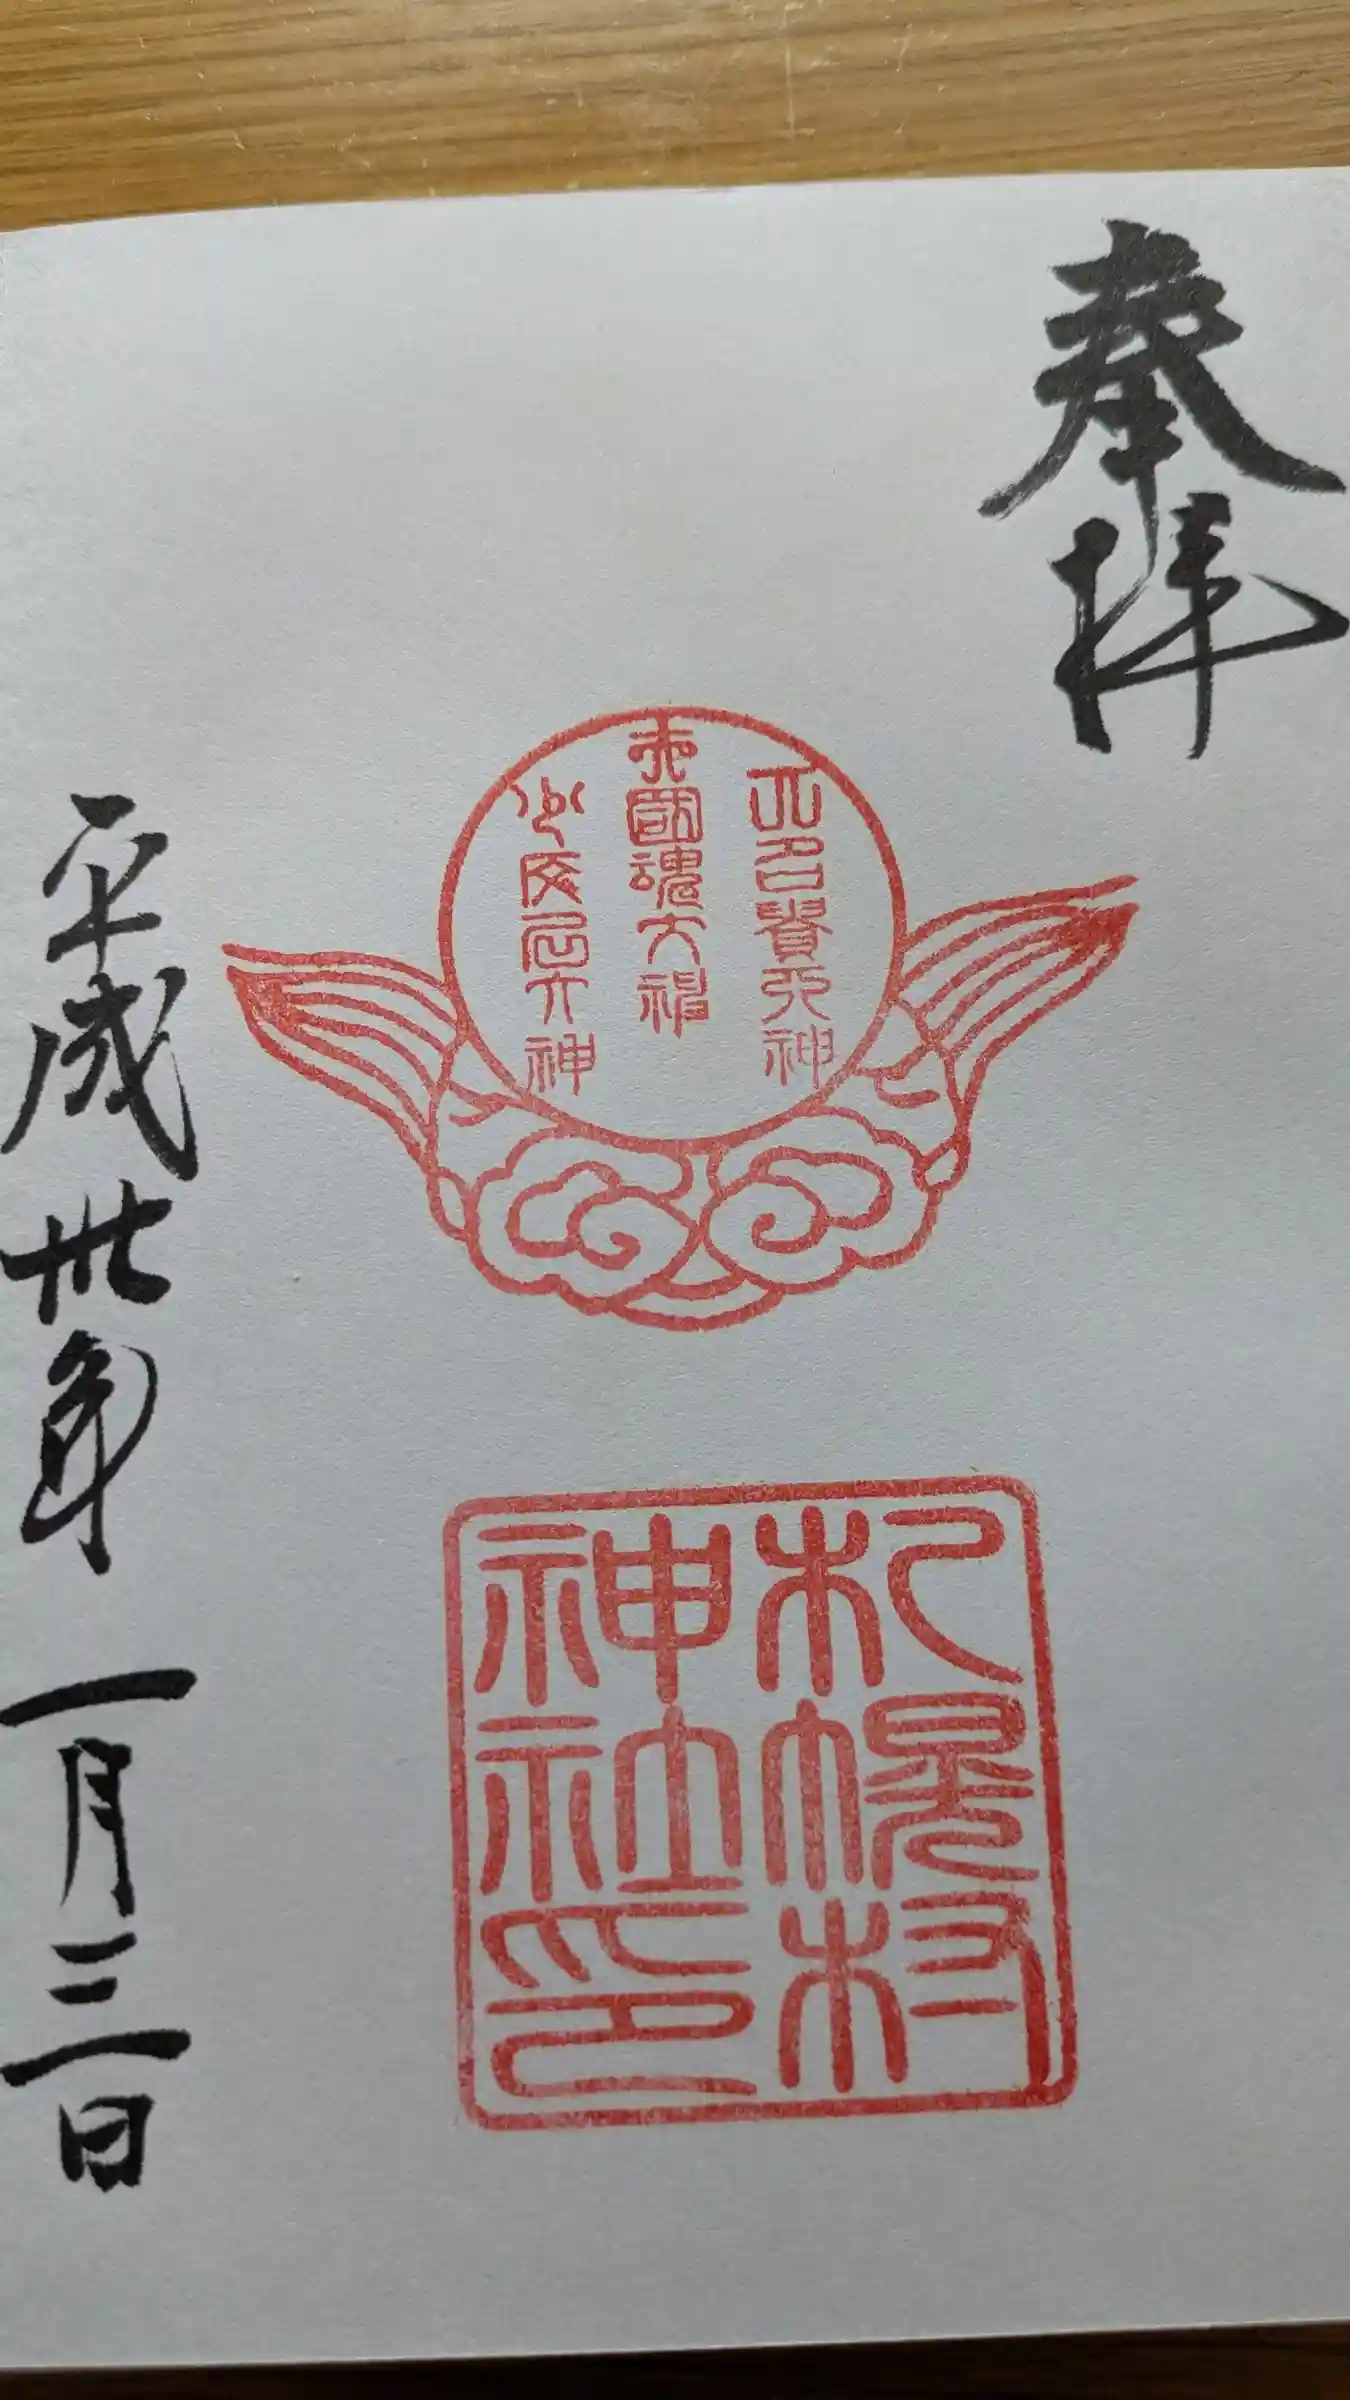 奉拝
大名貴大神
大國魂大神
少彦名大神
札幌村
神社印
平成卅年 一月三日